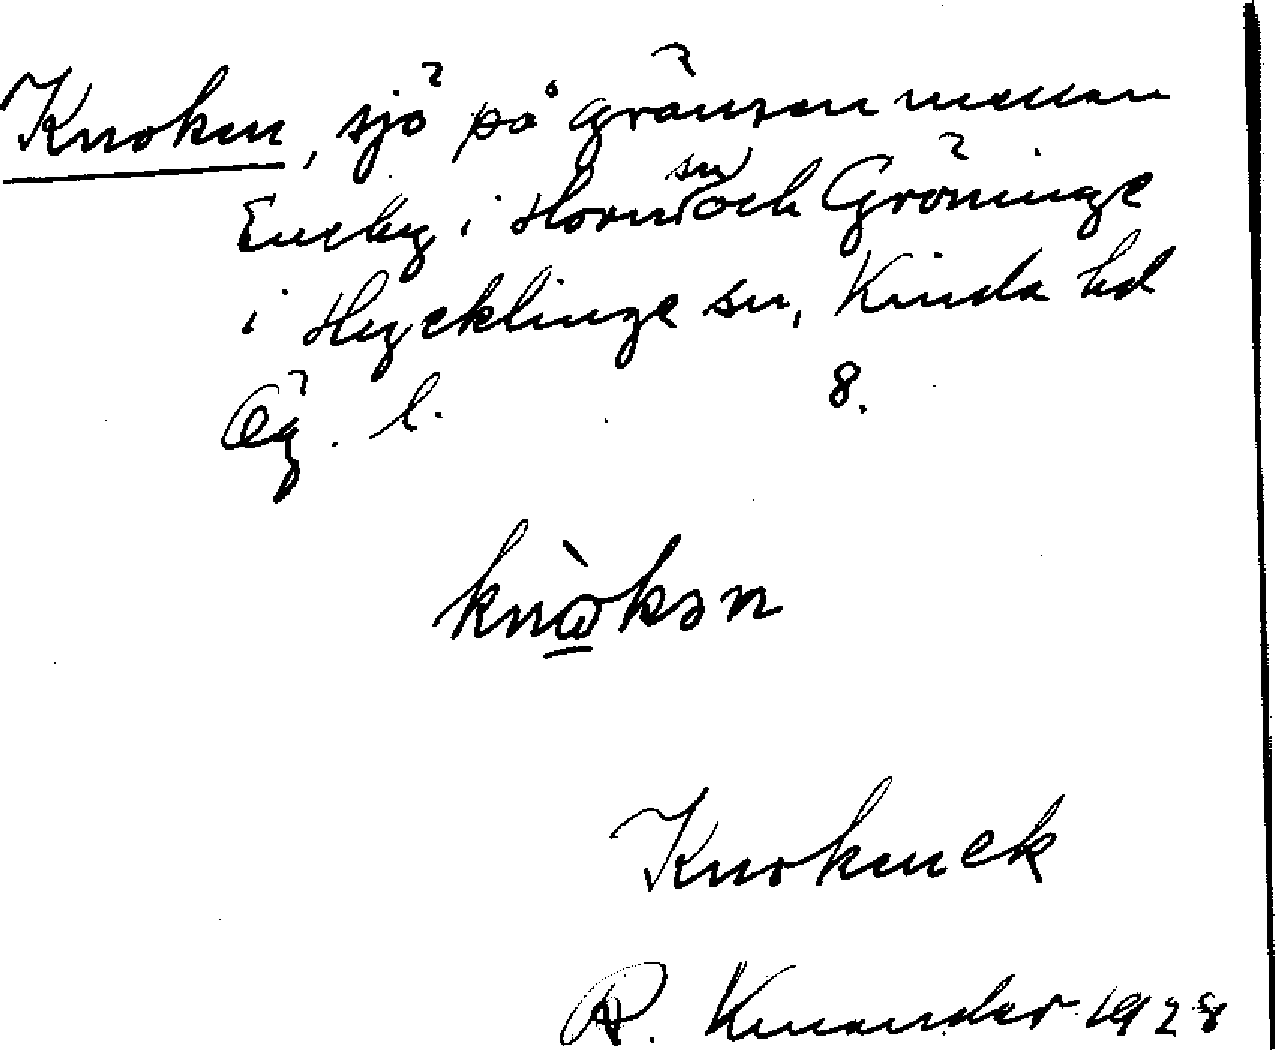 Knoken, sjö på gränsen mellan
Eneby i Horns sn och Gröninge
i Hycklinge sn, Kinda hd
Ög. l. 8.
knɷ̀kən
Knoken ek
R. Kinander 1928